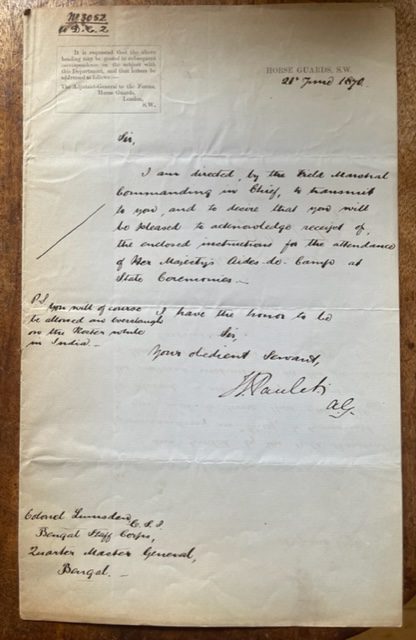 No. 3052
It is requested that the above
heading may be quoted in subsequent
correspondence on the subject with
this Department, and that letters be
addressed as follows:—
The Adjutant-General to the Forces,
Horse Guards,
London,
S.W.
HORSE GUARDS, S.W.
28th June 1870.
Sir,
I am directed, by the Field Marshal
Commanding in Chief, to transmit
to you, and to desire that you will
be pleased to acknowledge receipt of,
the enclosed instructions for the attendance
of Her Majesty's Aides-de-Camp at
State Ceremonies.—
P.S. You will of course
be allowed an
on the Roster while
in India.—
I have the honor to be
Sir,
Your obedient Servant,
W Paulet
A.G.
Colonel Lumsden, C.S.I.
Bengal Staff Corps,
Quarter Master General,
Bengal.—